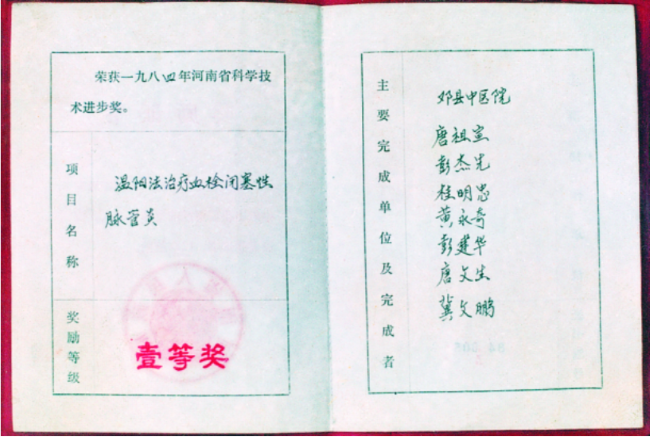 荣获一九八四年河南省科学技
术进步奖。
项目名称
温阳法治疗血栓闭塞性
脉管炎
奖励等级
壹等奖
主要完成单位及完成者
邓县中医院
唐祖宣
彭杰先
桂明忠
黄永奇
彭建华
唐文生
冀文鹏